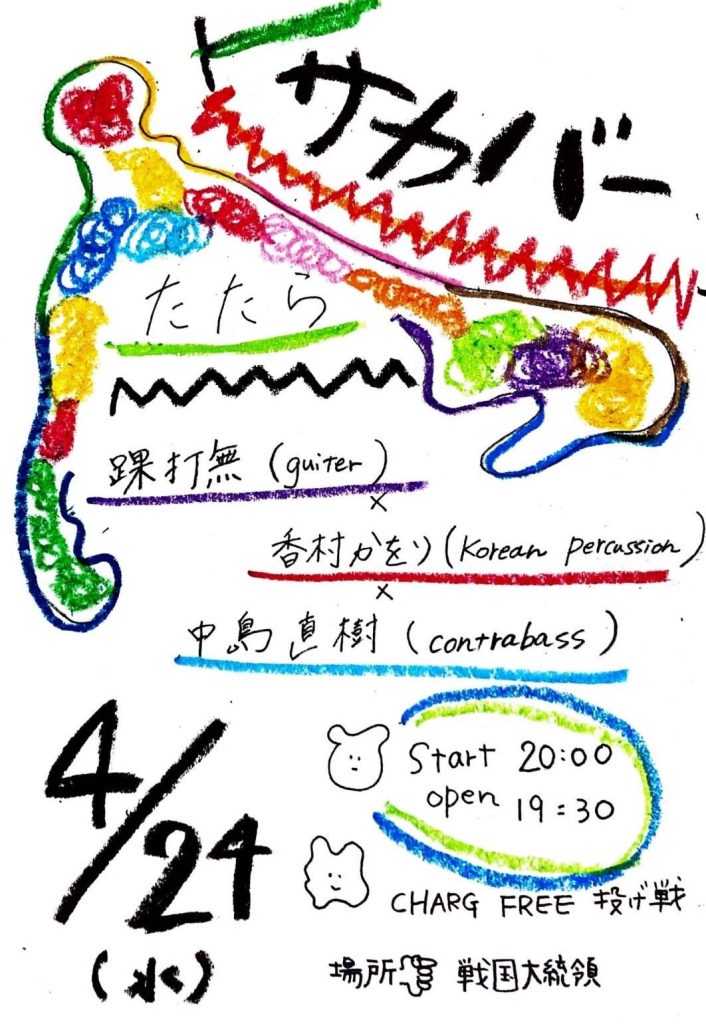 サカバー
たたら
踝打無(guiter)
×
香村かをり(Korean percussion)
×
中島直樹(contrabass)
4/24
(水)
Start 20:00
open 19:30
CHARG FREE 投げ戦
場所 戦国大統領